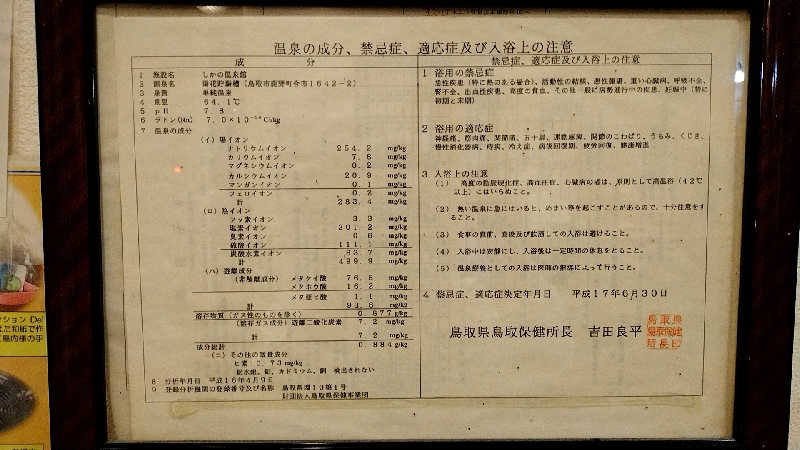 温泉の成分、禁忌症、適応症及び入浴上の注意
成　　分
1 施設名　しかの温泉館
2 源泉名　(鳥取市鹿野町今市1642-2)
3 泉質　単純温泉
4 泉温　64.1℃
5 pH　7.8
6 ラドン(Rn)　Ci/kg
7 温泉の成分
(イ)陽イオン
ナトリウムイオン　254.2　mg/kg
カリウムイオン　7.8　mg/kg
マグネシウムイオン　0.2　mg/kg
カルシウムイオン　20.9　mg/kg
マンガンイオン　0.1　mg/kg
フェロイオン　0.2　mg/kg
計　283.4　mg/kg
(ロ)陰イオン
フッ素イオン　3.3　mg/kg
塩素イオン　301.2　mg/kg
臭素イオン　0.6　mg/kg
硫酸イオン　111.1　mg/kg
炭酸水素イオン　83.7　mg/kg
計　499.9　mg/kg
(ハ)遊離成分
(非解離成分)　メタケイ酸　76.8　mg/kg
メタホウ酸　16.2　mg/kg
メタ亜ヒ酸　1.1　mg/kg
計　94.　mg/kg
溶存物質(ガス性のものを除く)　0.877g/kg
(溶存ガス成分)遊離二酸化炭素　7.2　mg/kg
計　7.2　mg/kg
成分総計　0.884g/kg
(ニ)その他の微量成分
ヒ素　0.73mg/kg
総水銀、鉛、カドミウム、銅　検出されない
8 分析年月日　平成16年4月9日
9 登録分析機関の登録番号及び名称　鳥取県第1号
財団法人鳥取県保健事業団
禁忌症、適応症及び入浴上の注意
1 浴用の禁忌症
急性疾患(特に熱のある場合)、活動性の結核、悪性腫瘍、重い心臓病、呼吸不全、
腎不全、出血性疾患、高度の貧血、その他一般に病勢進行中の疾患、妊娠中(特に
初期と末期)
2 浴用の適応症
神経痛、筋肉痛、関節痛、五十肩、運動麻痺、関節のこわばり、うちみ、くじき、
慢性消化器病、痔疾、冷え症、病後回復期、疲労回復、健康増進
3 入浴上の注意
(1) 高度の動脈硬化症、高血圧症、心臓病の者は、原則として高温浴(42℃
以上)にはいらぬこと。
(2) 熱い温泉に急にはいると、めまい等を起こすことがあるので、十分注意をす
ること。
(3) 食事の直前、直後及び飲酒しての入浴は避けること。
(4) 入浴中は安静にし、入浴後は一定時間の休息をとること。
(5) 温泉療養としての入浴は医師の指導によって行うこと。
4 禁忌症、適応症決定年月日　平成17年6月30日
鳥取県鳥取保健所長　吉田良平